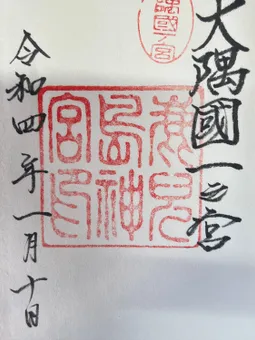 大隅國一之宮
隅國
ノ宮
鹿兒
島神
宮印
令和四年一月十日